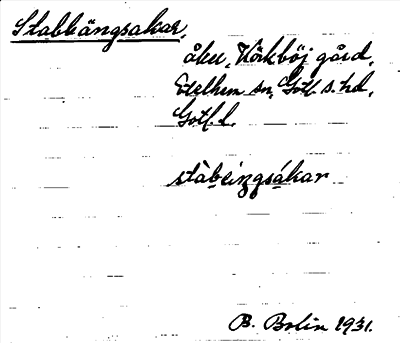 Stabbängsakar,
åker, Hörkböj gård,
Etelhem sn, Gotl. s. hd,
Gotl. l.
stàbeiŋgsákar
B. Bolin 1931.